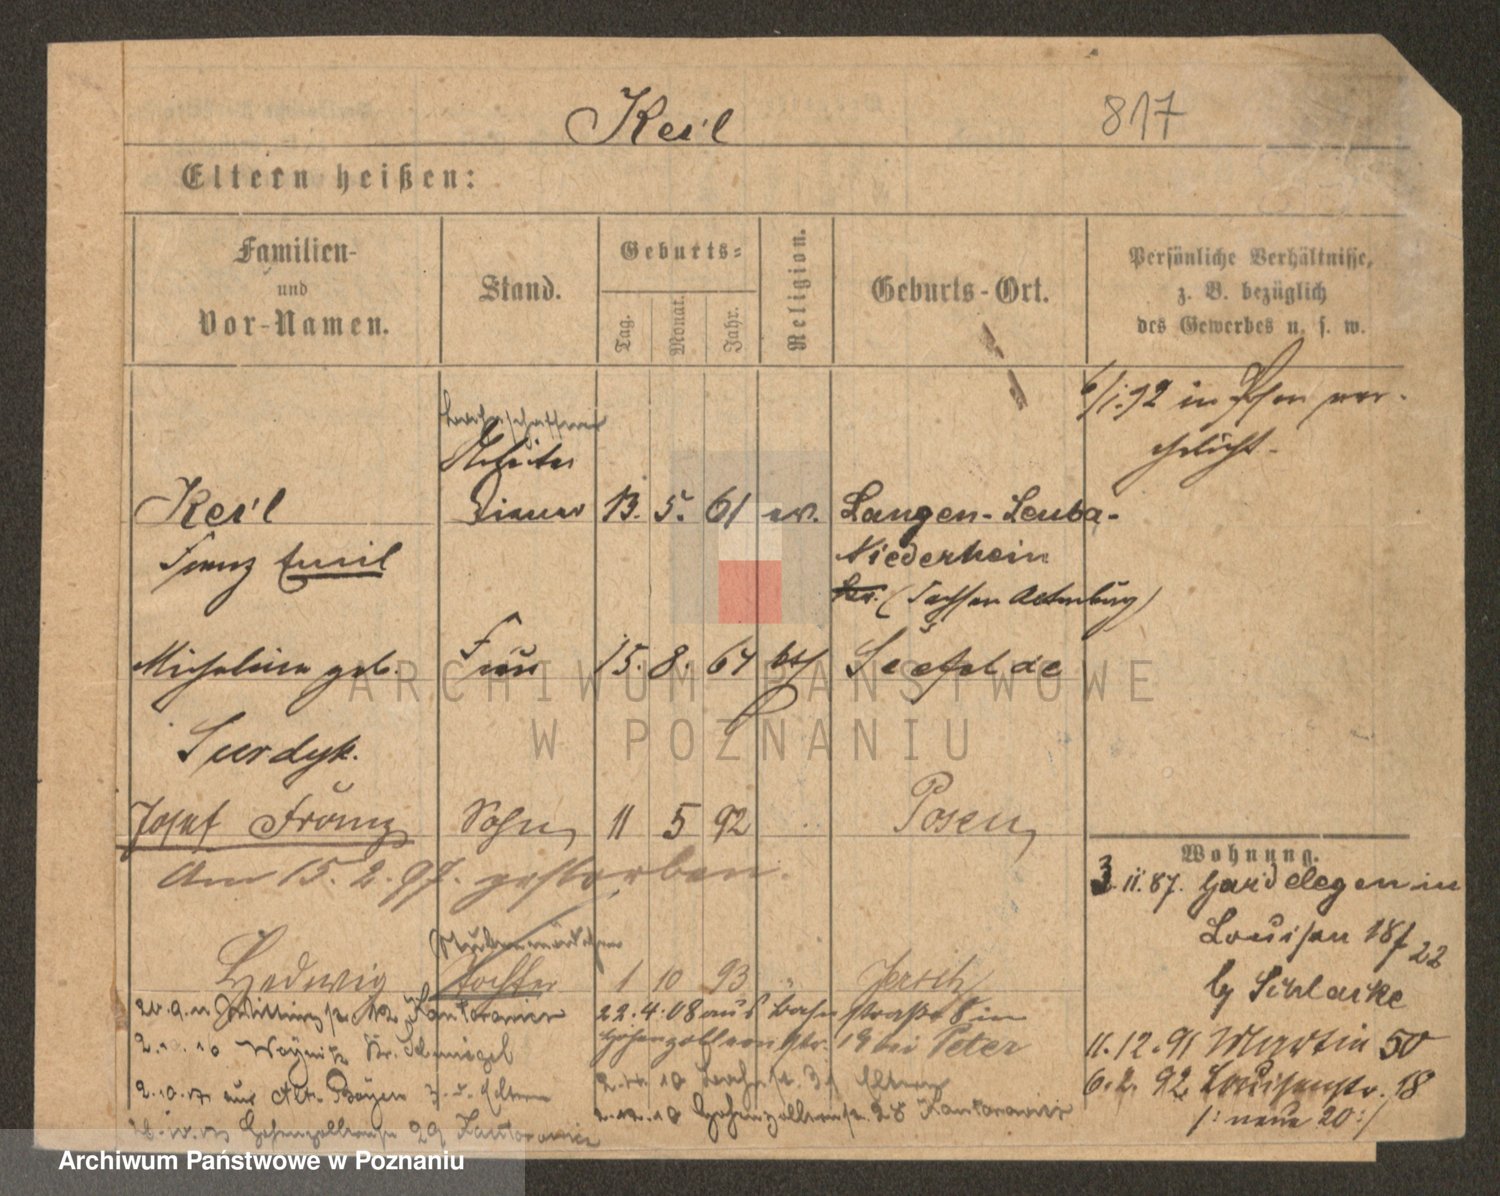 Keil
817
Eltern heißen:
Familien-
und
Vor-Namen.
Stand.
Geburts-
Tag.
Monat.
Jahr.
Religion.
Geburts-Ort.
Persönliche Verhältnisse,
z. B. bezüglich
des Gewerbes u. s. w.
6/1.92 in Posen ver-
ehelicht.
Arbeiter
Keil
Diener
13. 5. 61 ev.
Langen-Leuba-
Franz Emil
Niederhein
(Sachsen Altenburg)
Michalina geb.
Frau
15. 8. 64 kth
Seefelde
Surdyk.
Josef Franz
Sohn
11 5 92
Posen
Am 15. 2. 97. gestorben.
Wohnung.
3.11.87. Gardelegen in
Louisen 18f 22
b/ Schlacke
11.12.91 Martin 50
6.2. 92 Louisenstr. 18
/: neue 20 :/
Stubenmädchen
Hedwig
Tochter
1 10 93 "
Jersitz
Kantorowicz
2.10.10
Kr. Schmiegel
Eltern
29 Kantorowicz
22.4.08 aus Bahnstraße 8 in
Hohenzollernstr. 19 bei Peter
31 Eltern
2.12.10 Hohenzollernstr. 28 Kantorowicz
ARCHIWUM PAŃSTWOWE
W POZNANIU
Archiwum Państwowe w Poznaniu